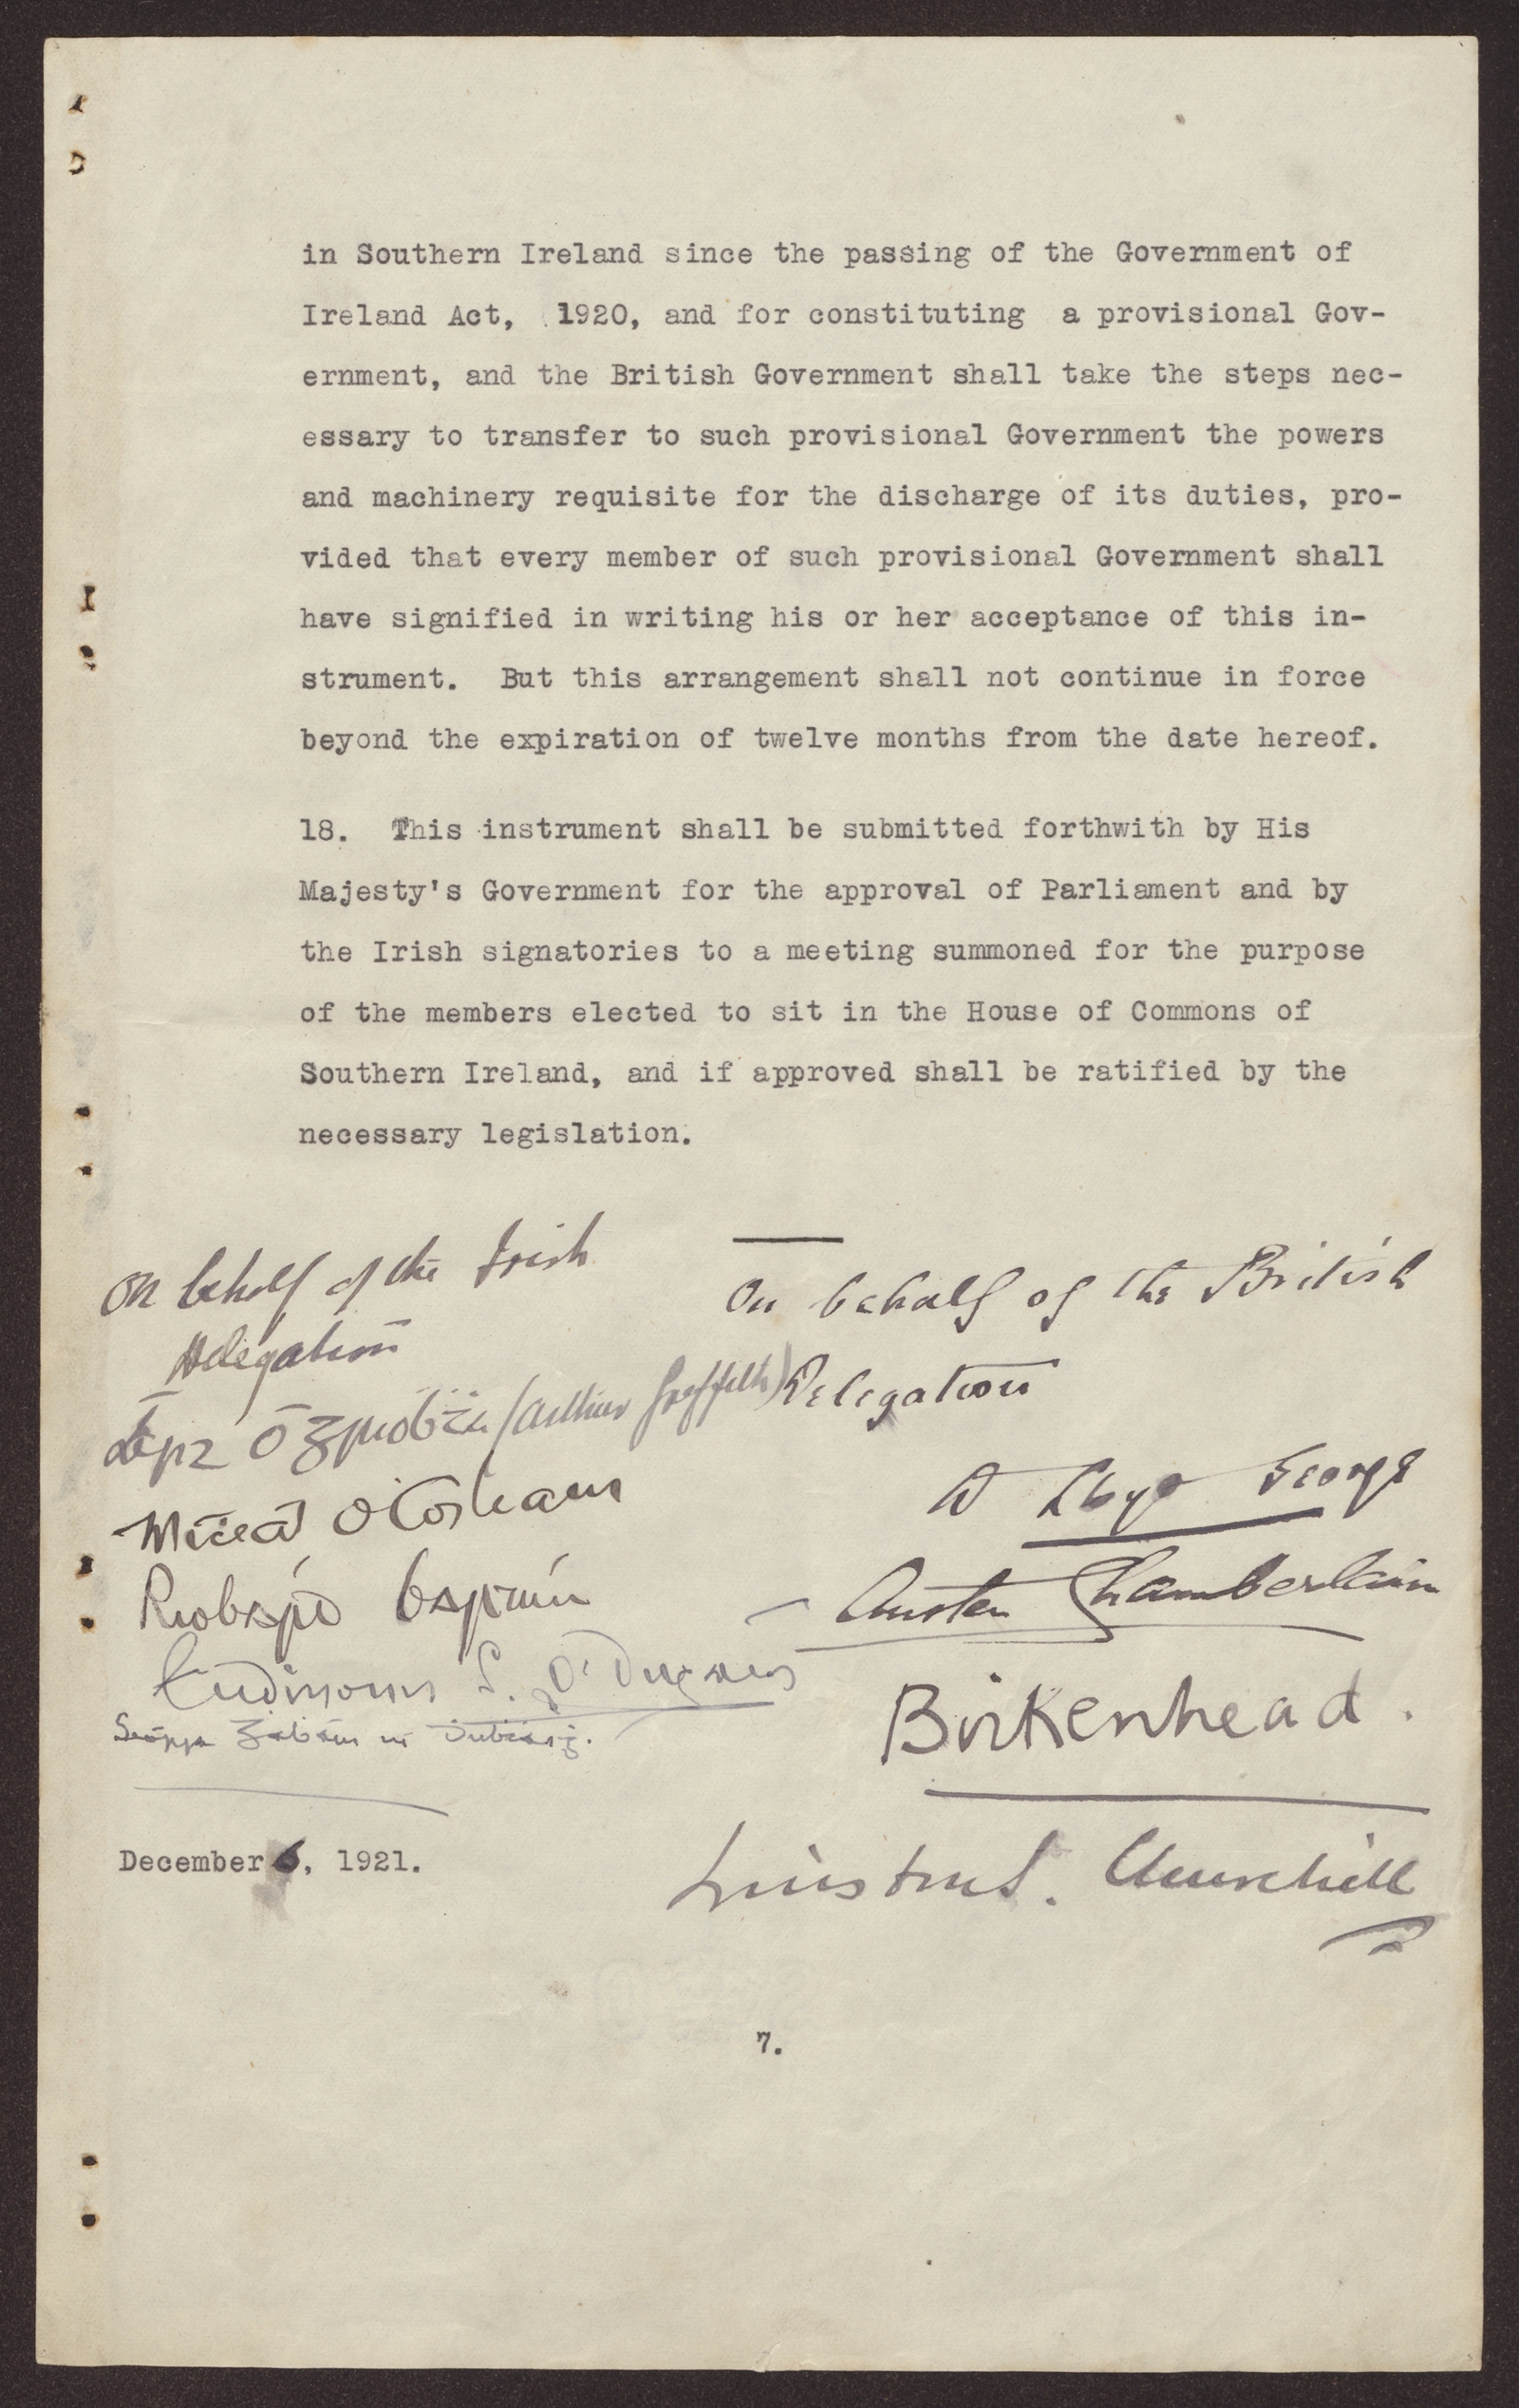 in Southern Ireland since the passing of the Government of
Ireland Act, 1920, and for constituting a provisional Gov-
ernment, and the British Government shall take the steps nec-
essary to transfer to such provisional Government the powers
and machinery requisite for the discharge of its duties, pro-
vided that every member of such provisional Government shall
have signified in writing his or her acceptance of this in-
strument. But this arrangement shall not continue in force
beyond the expiration of twelve months from the date hereof.
18. This instrument shall be submitted forthwith by His
Majesty's Government for the approval of Parliament and by
the Irish signatories to a meeting summoned for the purpose
of the members elected to sit in the House of Commons of
Southern Ireland, and if approved shall be ratified by the
necessary legislation.
On behalf of the Irish
Delegation
Art Ó Gríobhtha (Arthur Griffith)
Mícheál Ó Coileain
Riobárd Bartún
Eudhmonn S. Ó Dugain
Seórsa Ghabháin uí Dhubhthaigh
December 6, 1921.
On behalf of the British
Delegation
D Lloyd George
Austen Chamberlain
Birkenhead.
Winston S. Churchill
7.